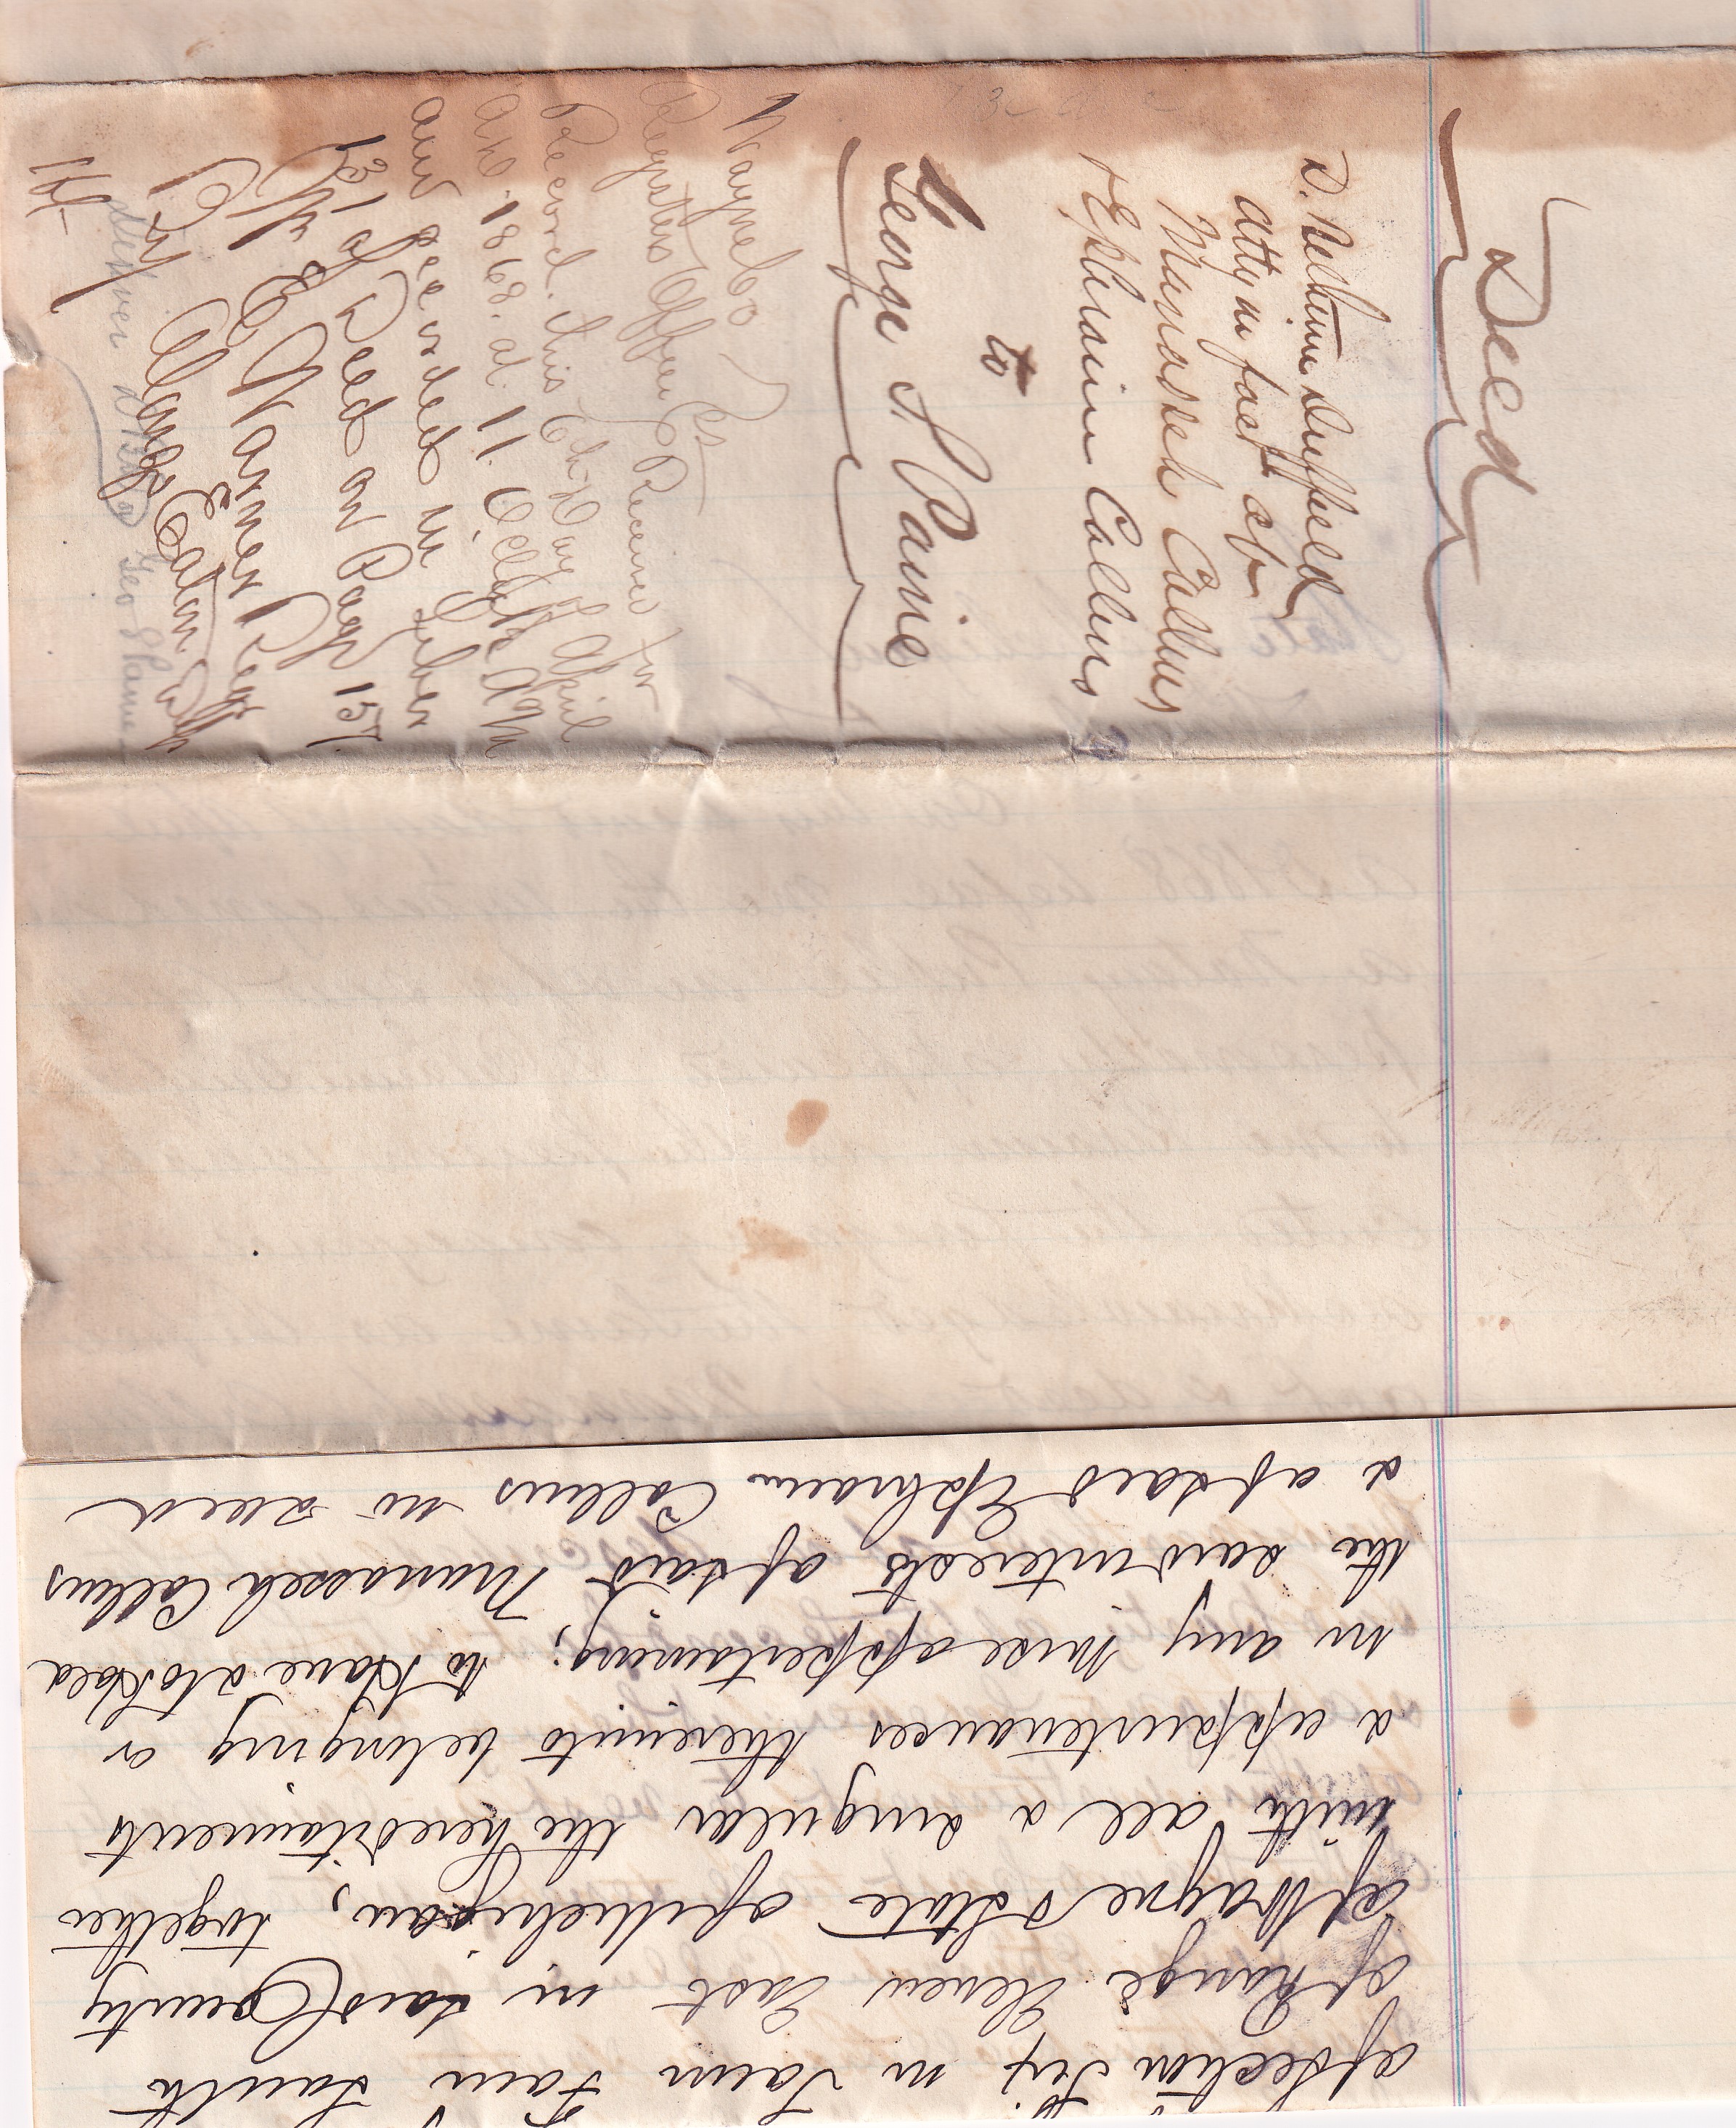 Deed
D. Bethune Duffield
atty in fact of
Manasseh Collins
& Ephraim Collins
to
George S Paine
Wayne Co } ss
Registers Office } Received for
Record this 6th Day of April
AD. 1868. at. 11. O,Clock AM
and recorded in Liber
131 of Deed on Page 157.
Wm E Warner Reg
By Alonzo Eaton Dept
Deliver Geo S Paine
of Section Six in Town Four South
of Range Eleven East in said County
of Wayne & State of Michigan, together
with all & singular the hereditaments
& appurtenances thereunto belonging or
in any wise appertaining; to Have & to Hold
the said interests of said Manasseh Collins
& of said Ephraim Collins in said